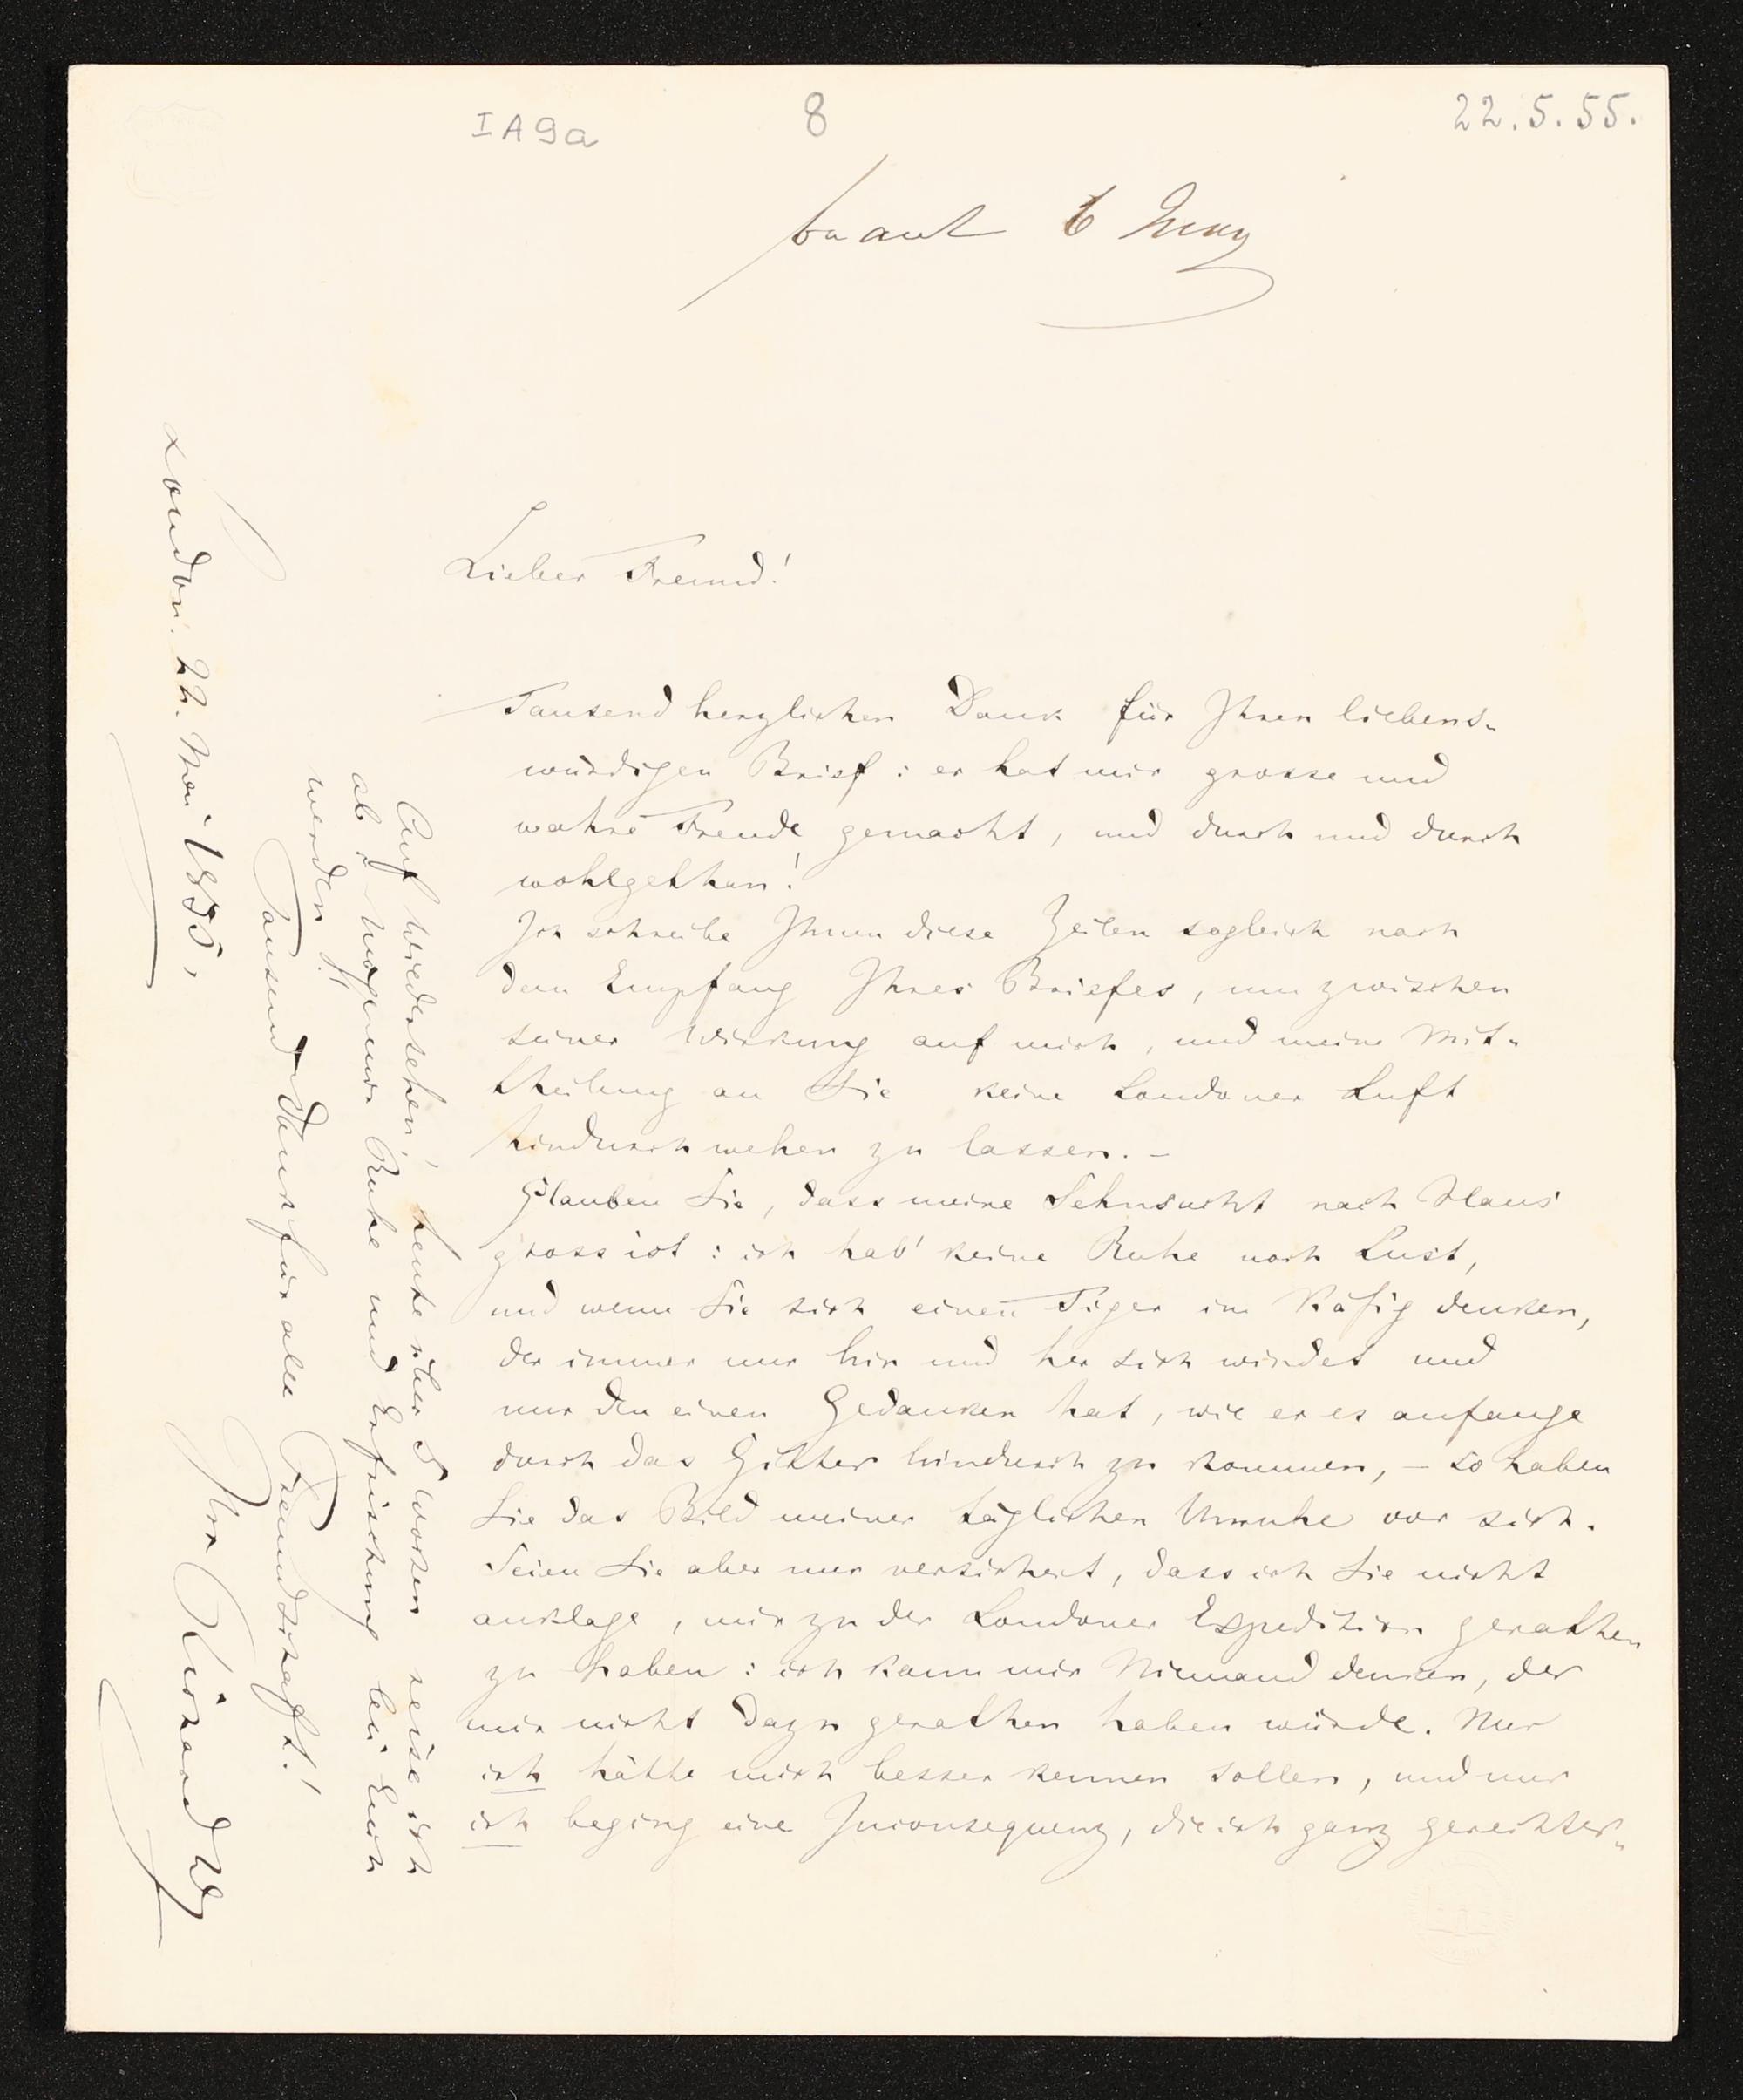 IA9a
8
22.5.55.
6
Lieber Freund!
Tausend herzlichen Dank für Ihren liebens-
würdigen Brief: er hat mir grosse und
wahre Freude gemacht, und durch und durch
wohlgethan!
Ich schreibe Ihnen diese Zeilen sogleich nach
dem Empfang Ihres Briefes, um zwischen
seiner Wirkung auf mich, und meine Mit-
theilung an Sie keine Londoner Luft
hindurchwehen zu lassen. –
Glauben Sie, dass meine Sehnsucht nach Haus
gross ist: ich hab' keine Ruhe noch Lust,
und wenn Sie sich einen Tiger im Käfig denken,
der immer nur hin und her sich windet und
nur den einen Gedanken hat, wie er es anfange
durch das Gitter hindurch zu kommen, – so haben
Sie das Bild meiner täglichen Unruhe vor sich.
Seien Sie aber nur versichert, dass ich Sie nicht
anklage, mir zu der Londoner Expedition gerathen
zu haben: ich kann mir Niemand denken, der
mir nicht dazu gerathen haben würde. Nur
ich hätte mich besser kennen sollen, und nur
ich beging eine Inconsequenz, die ich ganz gerechter-
Auf Wiedersehen! heute über 5 Wochen reise ich
ab: mögen mir Ruhe und Erfrischung bei Euch
werden!!
Tausend Dank für alle Freundschaft!
Ihr Richard W
London. 22. Mai 1855,